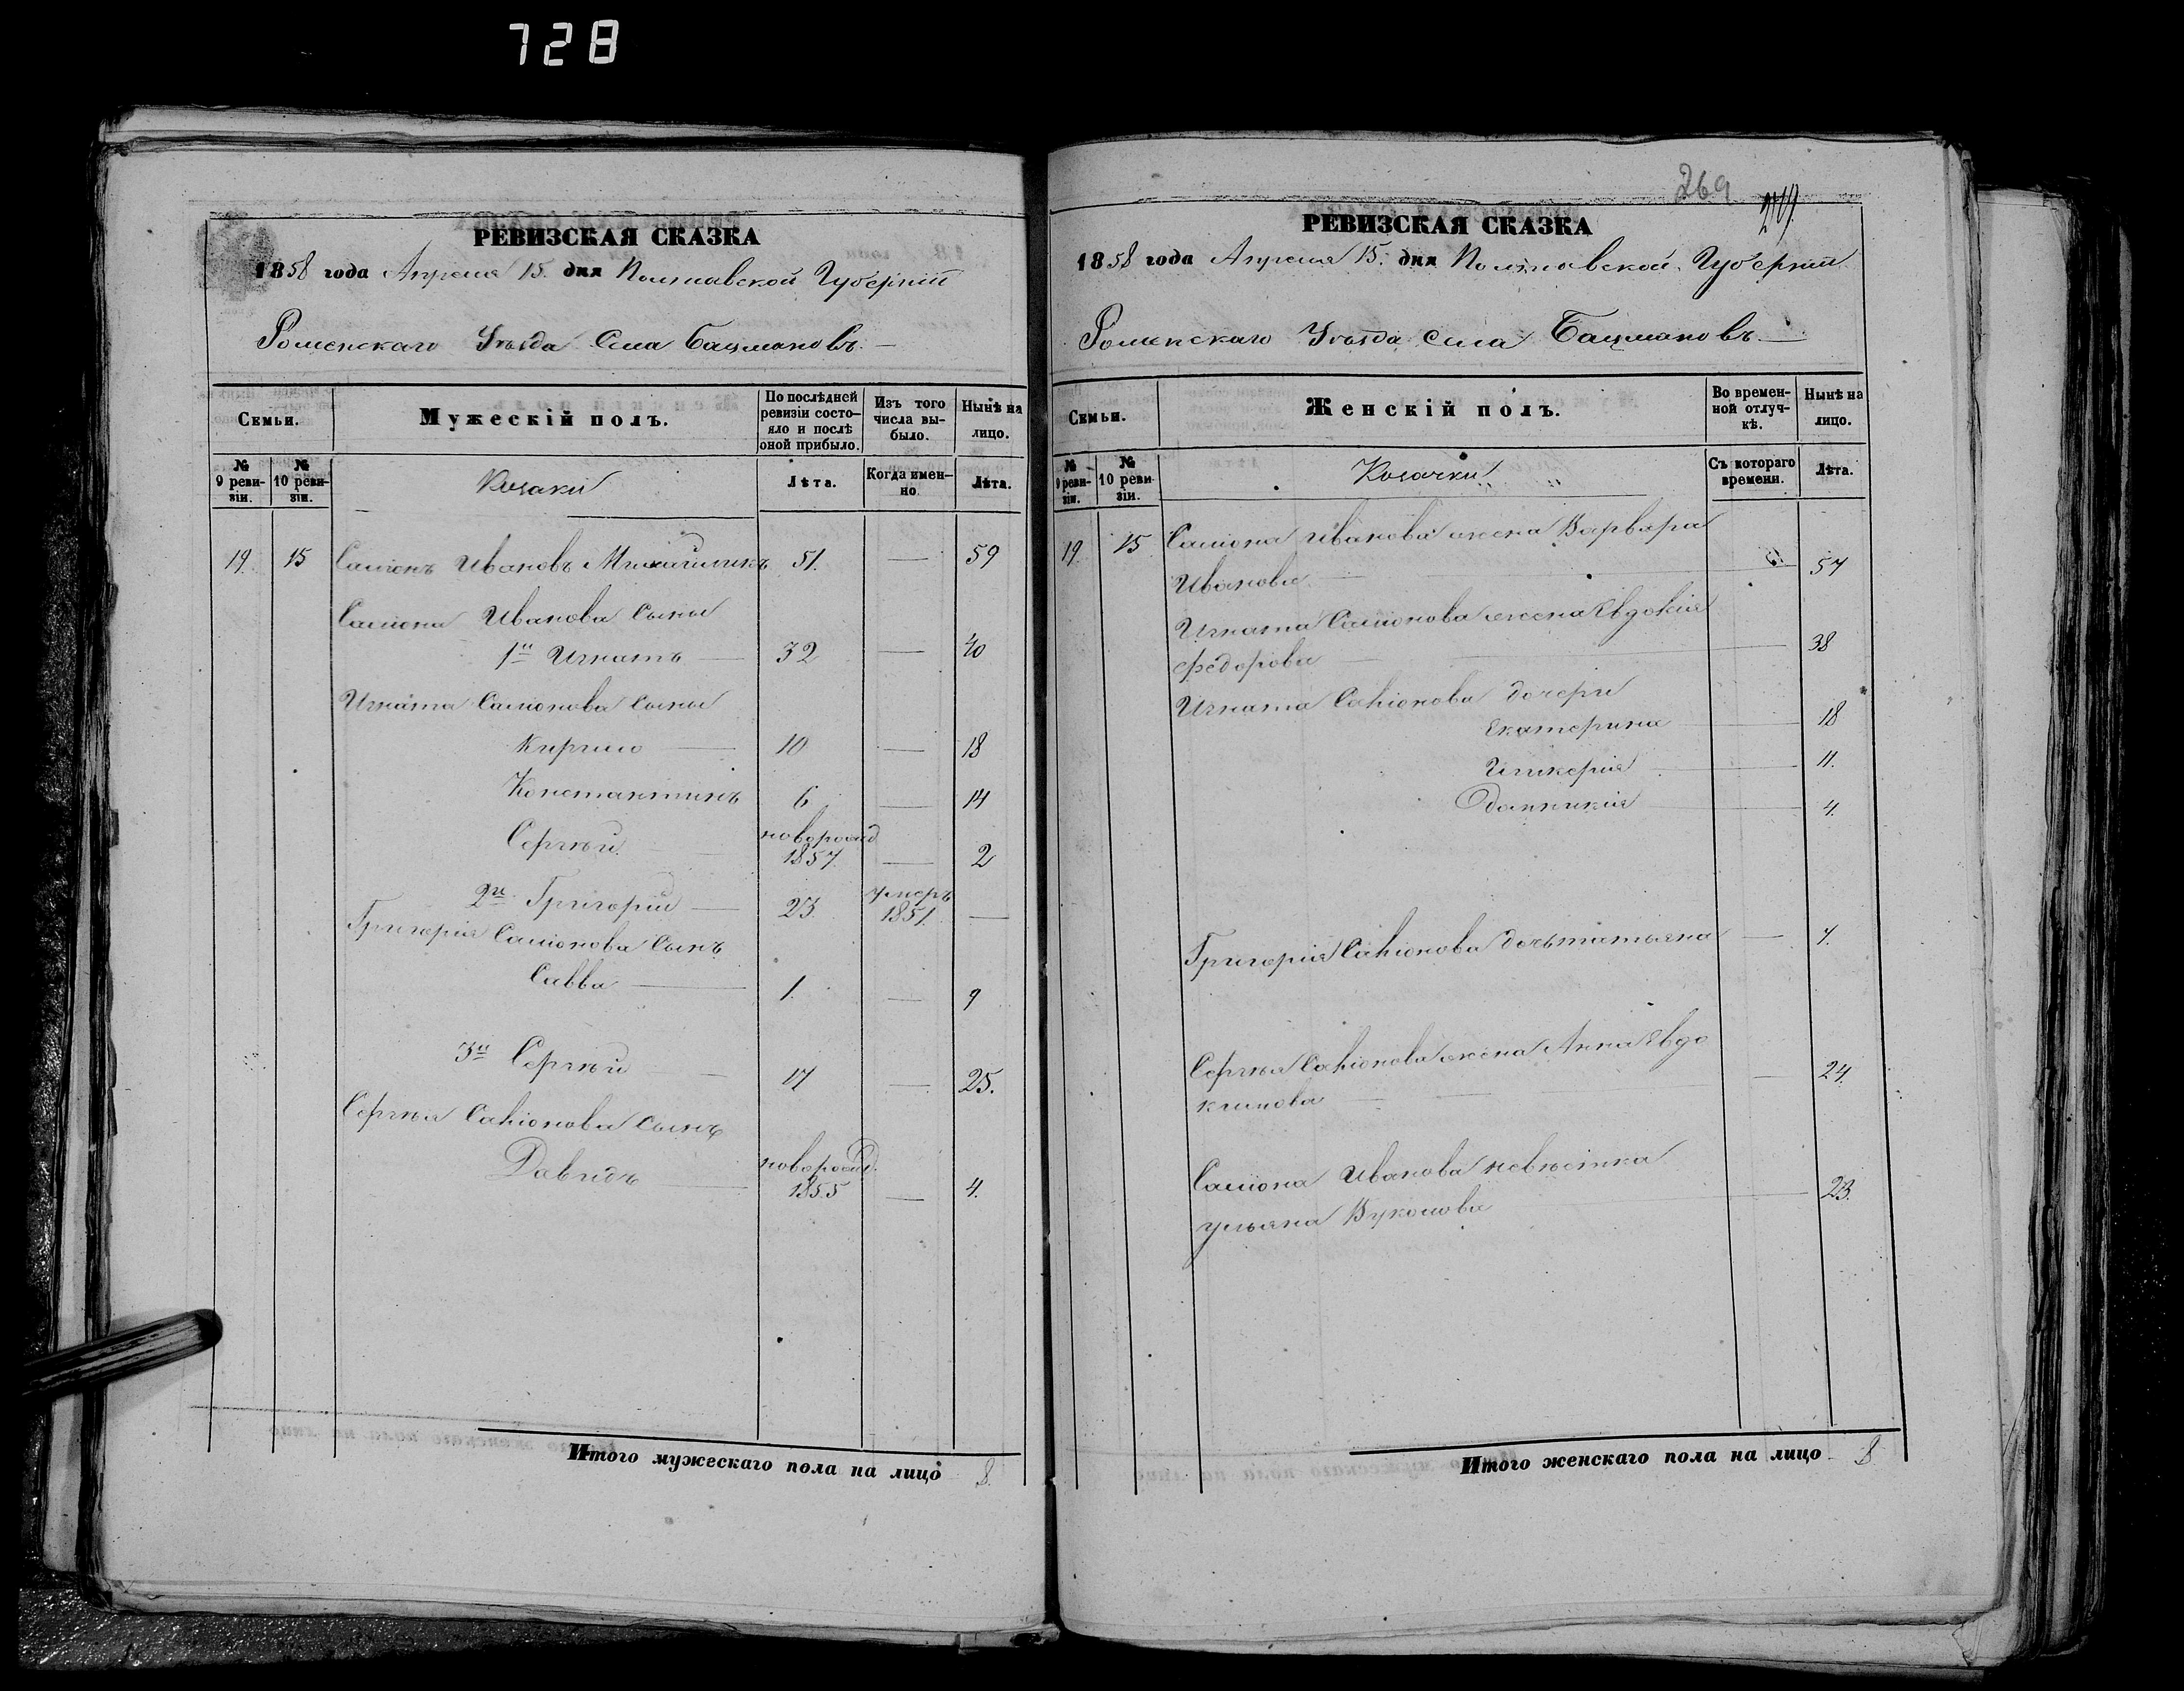 728
РЕВИЗСКАЯ СКАЗКА
1858 года Апреля 15. дня Полтавской Губерніи
Роменскаго Уѣзда Села Бацмановъ.
Семьи.
Мужескій полъ.
По послѣдней ревизіи состояло и послѣ оной прибыло.
Изъ того числа выбыло.
Нынѣ на лицо.
№ 9 ревизіи.
№ 10 ревизіи.
Козаки
Лѣта.
Когда именно.
Лѣта.
19. 15 Саміонъ Ивановъ 51. — 59
Саміона Иванова сыны
1й Игнатъ — 32 — 40
Игната Саміонова сыны
Кирило — 10 — 18
Константинъ 6 — 14
Сергѣй — новорожд 1857. — 2
2й Григорій — 23 умеръ 1851. —
Григорія Саміонова сынъ
Савва — 1. — 9
3й Сергѣй — 17 — 25.
Сергѣя Саміонова сынъ
Давидъ — новорожд. 1855 — 4.
Итого мужескаго пола на лицо 8.
269
РЕВИЗСКАЯ СКАЗКА
1858 года Апреля 15. дня Полтавской Губерніи
Роменскаго Уѣзда Села Бацмановъ.
Семьи.
Женскій полъ.
Во временной отлучкѣ.
Нынѣ на лицо.
№ 9 ревизіи.
№ 10 ревизіи.
Козачки
Съ котораго времени.
Лѣта.
19. 15 Саміона Иванова жена Варвара
Иванова — 57
Игната Саміонова жена Евдокія
Федорова — 38
Игната Саміонова дочери
Екатерина — 18
Гликерія — 11.
Домникія — 4.
Григорія Саміонова дочь татьяна — 7.
Сергѣя Саміонова жена Анна Евдо
кимова — 24.
Саміона Иванова невѣстка
ульяна Вуколова — 23.
Итого женскаго пола на лицо 8